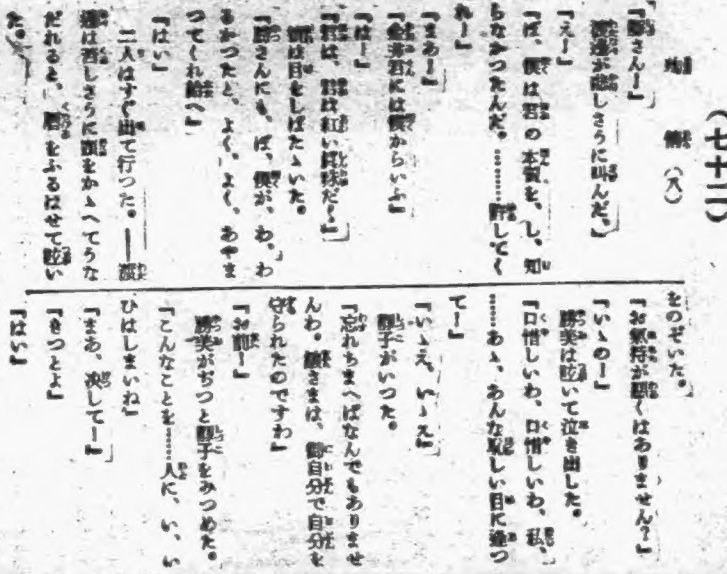 (七十二)
(八)
さん！』
が しさうに叫んだ。』
『え！』
『ぼ、僕は君の本質を、し、知
らなかつたんだ。………許してく
れ！』
『まあ！』
君には僕からいふ』
『は！』
『君は、君は紅い真珠だ！』
は目をしばたゝいた。
さんにも、ぼ、僕が、わ、わ
るかつたと、よく、よく、あやま
つてくれ給へ』
『はい』
二人はすぐ出て行つた。――
は苦しさうに頭をかゝへてうな
だれると、唇をふるはせて呟い
た。
をのぞいた。
『お気持が悪くはありません？』
『いゝの！』
勝美は呟いて泣き出した。
『口惜しいわ、口惜しいわ、私、
……あゝ、あんな恥しい目に逢つ
て！』
『いゝえ、いゝえ』
静子がいつた。
『忘れちまへばなんでもありませ
んわ。 さまは、御自分で自分を
守られたのですわ』
『お前！』
勝美がぢつと静子をみつめた。
『こんなことを……人に、い、い
ひはしまいね』
『まあ、決して！』
『きつとよ』
『はい』